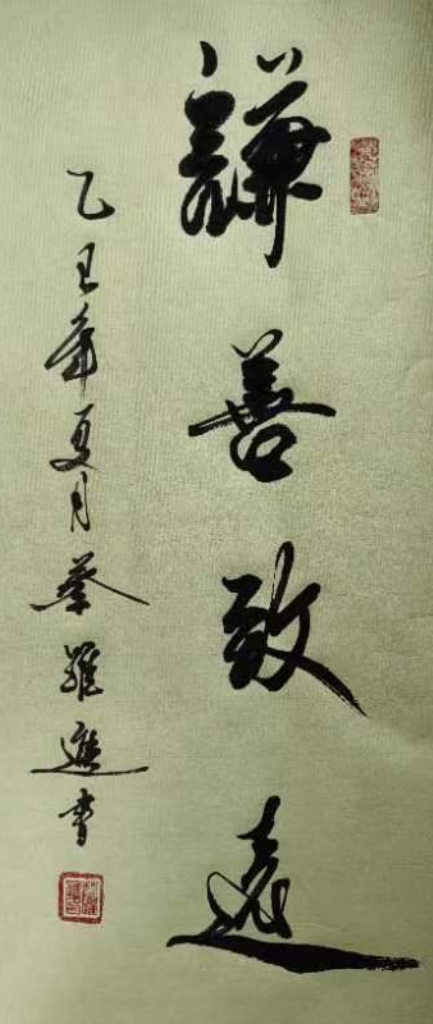 謙善致遠
乙丑年夏月蔡羅進書